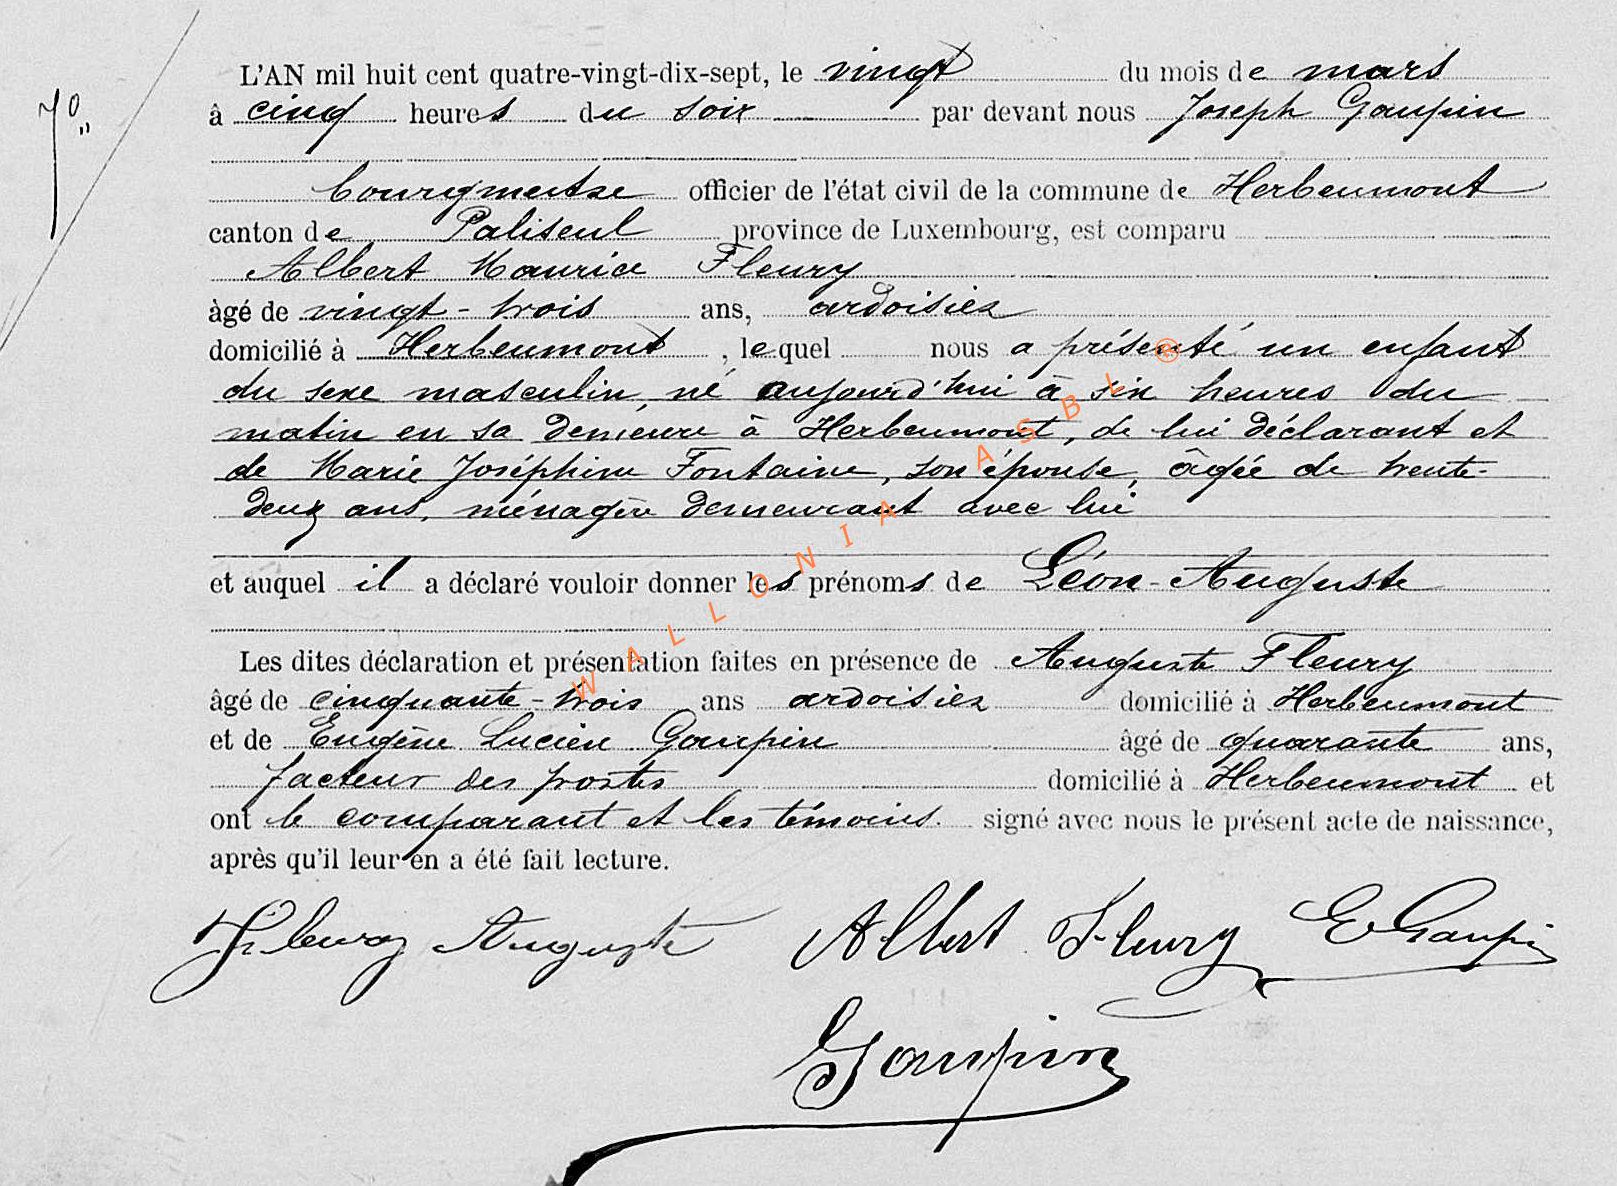 L'AN mil huit cent quatre-vingt-dix-sept, le vingt du mois de mars
7°
à cinq heures du soir par devant nous Joseph Goupin
bourgmestre officier de l'état civil de la commune de Herbeumont
canton de Paliseul province de Luxembourg, est comparu
Albert Maurice Fleury
âgé de vingt-trois ans, ardoisier
domicilié à Herbeumont, lequel nous a présenté un enfant
du sexe masculin, né aujourd'hui à six heures du
matin en sa demeure à Herbeumont, de lui déclarant et
de Marie Joséphine Fontaine, son épouse, âgée de trente-
deux ans, ménagère demeurant avec lui
et auquel il a déclaré vouloir donner les prénoms de Léon-Auguste
Les dites déclaration et présentation faites en présence de Auguste Fleury
âgé de cinquante-trois ans ardoisier domicilié à Herbeumont
et de Eugène Lucien Goupin âgé de quarante ans,
facteur des postes domicilié à Herbeumont et
ont le comparant et les témoins signé avec nous le présent acte de naissance,
après qu'il leur en a été fait lecture.
Fleury Auguste Albert Fleury E Goupin
Goupin
WALLONIA ASBL ®